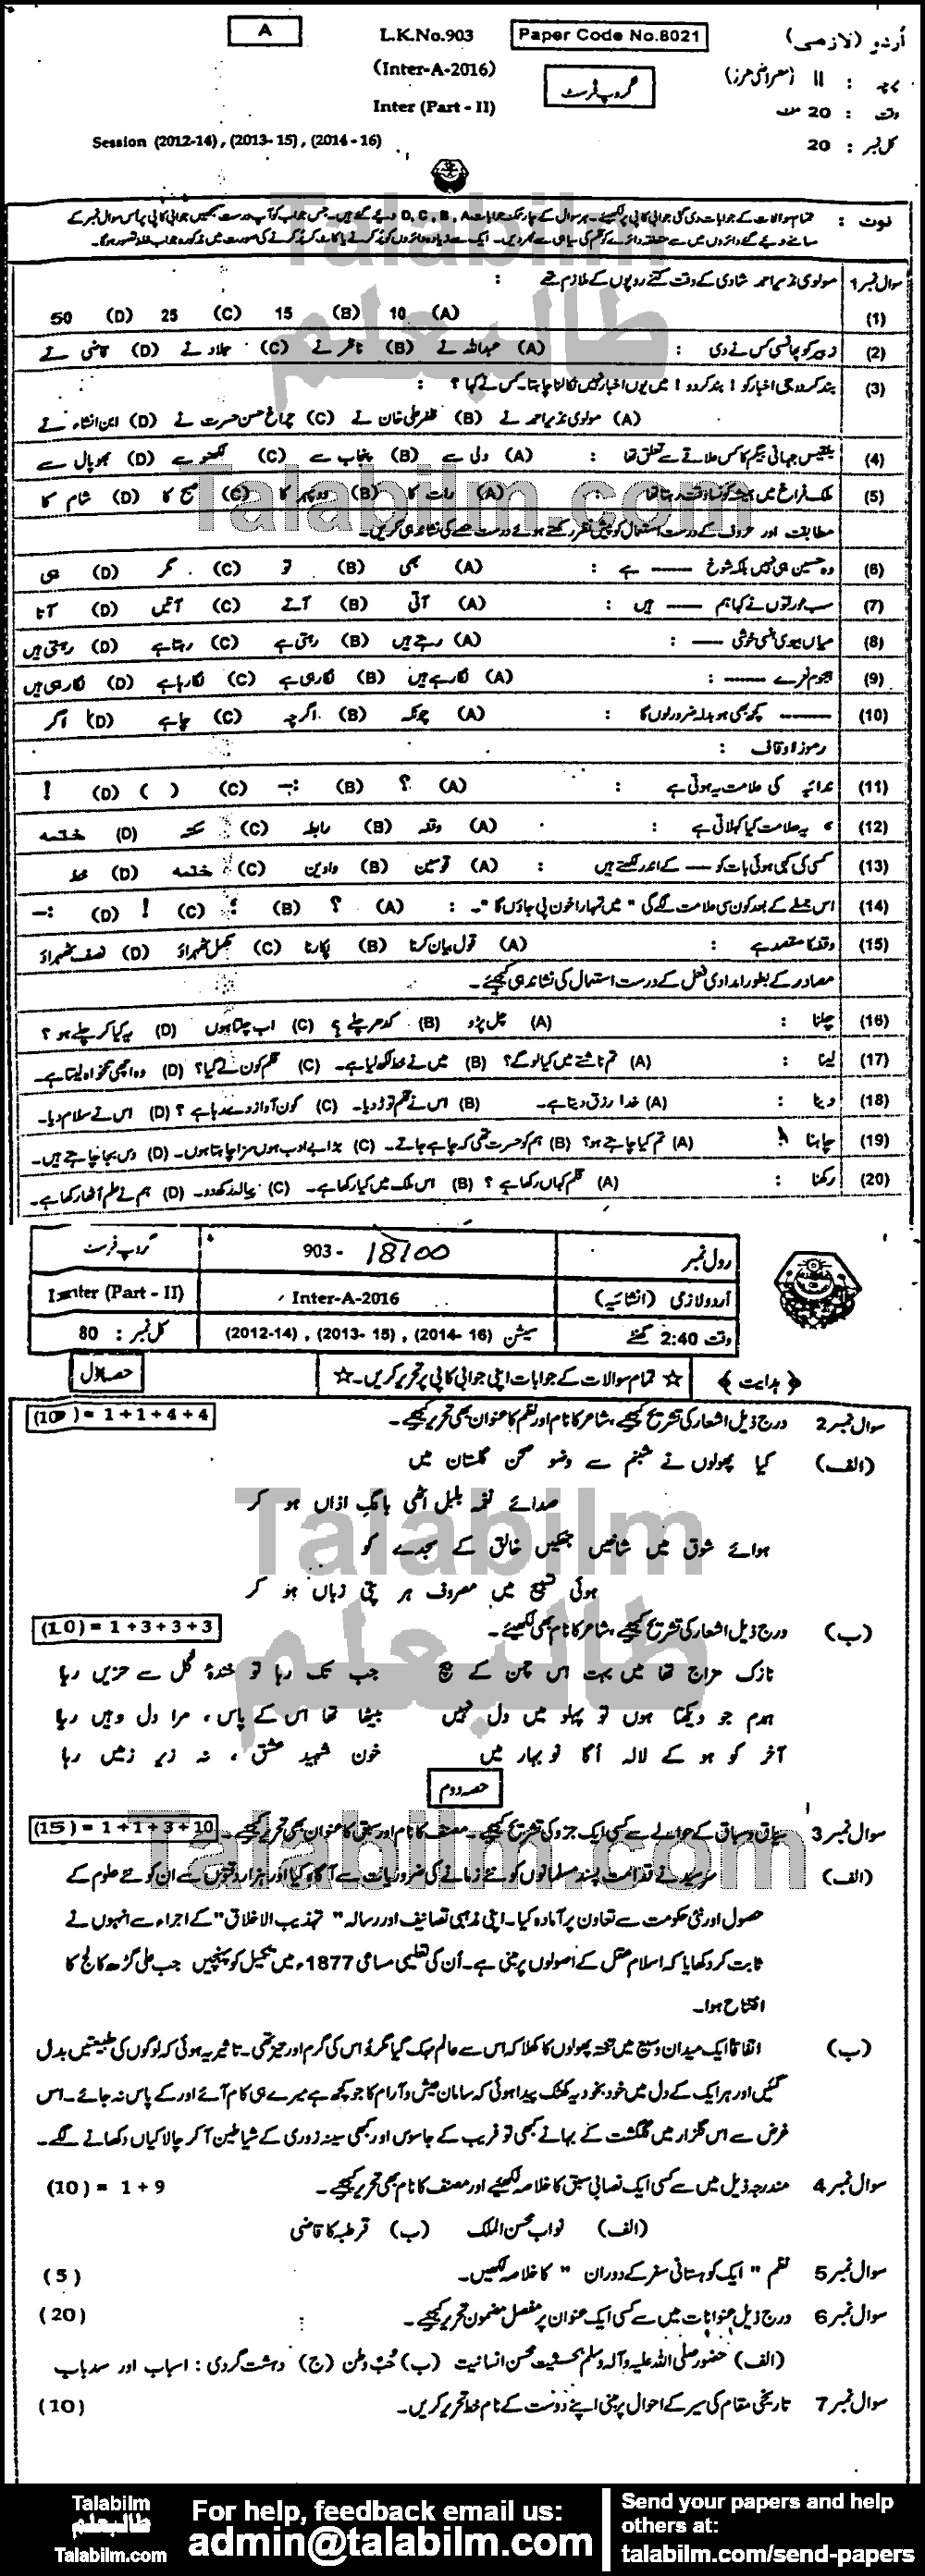 اُردو (لازمی) Paper Code No.8021 L.K.No.903 A
پرچہ : II (معروضی طرز) گروپ فرسٹ (Inter-A-2016)
وقت : 20 منٹ Inter (Part - II)
کل نمبر : 20 Session (2012-14) , (2013- 15) , (2014 - 16)
نوٹ : تمام سوالات کے جوابات دی گئی جوابی کاپی پر لکھیئے۔ ہر سوال کے چار ممکنہ جوابات D, C, B, A دیئے گئے ہیں۔ جس جواب کو آپ درست سمجھیں جوابی کاپی پر اُس سوال نمبر کے
سامنے دیئے گئے دائروں میں سے متعلقہ دائرے کو قلم کی سیاہی سے بھر دیں۔ ایک سے زیادہ دائروں کو پُر کرنے یا کاٹ کر پُر کرنے کی صورت میں مذکورہ جواب غلط تصور ہوگا۔
سوال نمبر 1 مولوی نذیر احمد شادی کے وقت کتنے روپوں کے ملازم تھے :
(1) (A) 10 (B) 15 (C) 25 (D) 50
(2) زبیر کو پھانسی کس نے دی : (A) عبداللہ نے (B) ناظر نے (C) جلاد نے (D) قاضی نے
(3) بند کر دو جی اخبار کو ! بند کر دو ! میں یوں اخبار نہیں نکالنا چاہتا۔ کس نے کہا ؟ :
(A) مولوی نذیر احمد نے (B) ظفر علی خان نے (C) چراغ حسن حسرت نے (D) ابن انشاء نے
(4) بلقیس جہانی بیگم کا کس علاقے سے تعلق تھا : (A) دلی سے (B) پنجاب سے (C) لکھنو سے (D) بھوپال سے
(5) ملک فراغ میں ہمیشہ کونسا وقت رہتا تھا : (A) رات کا (B) دوپہر کا (C) صبح کا (D) شام کا
مطابقت اور حروف کے درست استعمال کو پیش نظر رکھتے ہوئے درست حصے کی نشاندہی کریں۔
(6) وہ حسین ہی نہیں بلکہ شوخ —— ہے : (A) بھی (B) تو (C) مگر (D) ہی
(7) سب عورتوں نے کہا ہم —— ہیں : (A) آتی (B) آتے (C) آئیں (D) آنا
(8) میاں بیوی ہنسی خوشی —— : (A) رہتے ہیں (B) رہتی ہے (C) رہتا ہے (D) رہتی ہیں
(9) ہجوم نعرے —— : (A) لگا رہے ہیں (B) لگا رہی ہے (C) لگا رہا ہے (D) لگا رہی ہیں
(10) —— کچھ بھی ہو بدلہ ضرور لوں گا : (A) چونکہ (B) اگرچہ (C) چاہے (D) اگر
رموز اوقاف :
(11) ندائیہ کی علامت یہ ہوتی ہے : (A) ؟ (B) :- (C) ( ) (D) !
(12) ، یہ علامت کیا کہلاتی ہے : (A) وقفہ (B) رابطہ (C) سکتہ (D) ختمہ
(13) کسی کی کہی ہوئی بات کو —— کے اندر لکھتے ہیں : (A) قوسین (B) واوین (C) ختمہ (D) خط
(14) اس جملے کے بعد کون سی علامت لگے گی " میں تمہارا خون پی جاؤں گا "۔ : (A) ؟ (B) ؛ (C) ! (D) :-
(15) وقفہ کا مقصد ہے : (A) قول بیان کرنا (B) پکارنا (C) مکمل ٹھہراؤ (D) نصف ٹھہراؤ
مصادر کے بطور امدادی فعل کے درست استعمال کی نشاندہی کیجیئے۔
(16) چلنا : (A) چل پڑو (B) کدھر چلے ؟ (C) اب چلتا ہوں (D) یہ کیا کر چلے ہو ؟
(17) لینا : (A) تم ناشتے میں کیا لو گے؟ (B) میں نے خط لکھ لیا ہے۔ (C) قلم کون لے گیا؟ (D) وہ اچھی تنخواہ لیتا ہے۔
(18) دینا : (A) خدا رزق دیتا ہے۔ (B) اس نے قلم توڑ دیا۔ (C) کون آواز دے رہا ہے ؟ (D) اس نے سلام دیا۔
(19) چاہنا : (A) تم کیا چاہتے ہو؟ (B) ہم کو حسرت تھی کہ چاہے جاتے۔ (C) بڑا بے ادب ہوں سزا چاہتا ہوں۔ (D) دس بجا چاہتے ہیں۔
(20) رکھنا : (A) قلم کہاں رکھا ہے ؟ (B) اس ملک میں کیا رکھا ہے۔ (C) پیالہ رکھ دو۔ (D) ہم نے علم اُٹھا رکھا ہے۔
رول نمبر 903 - 18100 گروپ فرسٹ
اُردو لازمی (انشائیہ) Inter-A-2016 Inter (Part - II)
وقت 2:40 گھنٹے سیشن (2012-14) , (2013- 15) , (2014- 16) کل نمبر : 80
﴿ ہدایت ﴾ ☆ تمام سوالات کے جوابات اپنی جوابی کاپی پر تحریر کریں۔☆ حصہ اوّل
سوال نمبر 2 درج ذیل اشعار کی تشریح کیجیے ، شاعر کا نام اور نظم کا عنوان بھی تحریر کیجیے۔ (10) = 1+1+4+4
(الف) کیا پھولوں نے شبنم سے وضو صحن گلستاں میں
صدائے نغمہ بلبل اٹھی بانگِ اذاں ہو کر
ہوائے شوق میں شاخیں جھکیں خالق کے سجدے کو
ہوئی تسبیح میں مصروف ہر پتی زباں ہو کر
(ب) درج ذیل اشعار کی تشریح کیجیے ، شاعر کا نام بھی لکھیئے۔ (10) = 1+3+3+3
نازک مزاج تھا میں بہت اس چمن کے بیچ جب تک رہا تو خندۂ گل سے حزیں رہا
ہمدم جو دیکھتا ہوں تو پہلو میں دل نہیں بیٹھا تھا اس کے پاس ، مرا دل وہیں رہا
آخر کو ہو کے لالہ اُگا نو بہار میں خون شہید عشق ، نہ زیر زمیں رہا
حصہ دوم
سوال نمبر 3 سیاق و سباق کے حوالے سے کسی ایک جزو کی تشریح کیجیے۔ مصنف کا نام اور سبق کا عنوان بھی تحریر کیجیے۔ (15) = 1+1+3+10
(الف) سرسید نے قدامت پسند مسلمانوں کو نئے زمانے کی ضروریات سے آگاہ کیا اور ہزار دقتوں سے ان کو نئے علوم کے
حصول اور نئی حکومت سے تعاون پر آمادہ کیا۔ اپنی مذہبی تصانیف اور رسالہ " تہذیب الاخلاق" کے اجراء سے انہوں نے
ثابت کر دکھایا کہ اسلام عقل کے اصولوں پر مبنی ہے۔ اُن کی تعلیمی مساعی 1877ء میں تکمیل کو پہنچیں جب علی گڑھ کالج کا
افتتاح ہوا۔
(ب) اتفاقاً ایک میدان وسیع میں تختہ پھولوں کا کھلا کہ اس سے عالم مہک گیا مگر بُو اس کی گرم اور تیز تھی۔ تاثیر یہ ہوئی کہ لوگوں کی طبیعتیں بدل
گئیں اور ہر ایک کے دل میں خود بخود یہ کھٹک پیدا ہوئی کہ سامان عیش و آرام کا جو کچھ ہے میرے ہی کام آئے اور کے پاس نہ جائے۔ اس
غرض سے اس گلزار میں گلگشت کے بہانے کبھی تو فریب کے جاسوس اور کبھی سینہ زوری کے شیاطین آ کر چالاکیاں دکھانے لگے۔
سوال نمبر 4 مندرجہ ذیل میں سے کسی ایک نصابی سبق کا خلاصہ لکھیئے اور مصنف کا نام بھی تحریر کیجیے۔ (10) = 1+9
(الف) نواب محسن الملک (ب) قرطبہ کا قاضی
سوال نمبر 5 نظم " ایک کوہستانی سفر کے دوران " کا خلاصہ لکھیں۔ (5)
سوال نمبر 6 درج ذیل عنوانات میں سے کسی ایک عنوان پر مفصل مضمون تحریر کیجیے۔ (20)
(الف) حضور صلی اللہ علیہ وآلہ وسلم بحیثیت محسن انسانیت (ب) حُب وطن (ج) دہشت گردی : اسباب اور سدباب
سوال نمبر 7 تاریخی مقام کی سیر کے احوال پر مبنی اپنے دوست کے نام خط تحریر کریں۔ (10)
Talabilm
طالبعلم
Talabilm.com
Talabilm
طالبعلم
Talabilm.com
Talabilm
طالبعلم
Talabilm.com
For help, feedback email us:
admin@talabilm.com
Send your papers and help
others at:
talabilm.com/send-papers